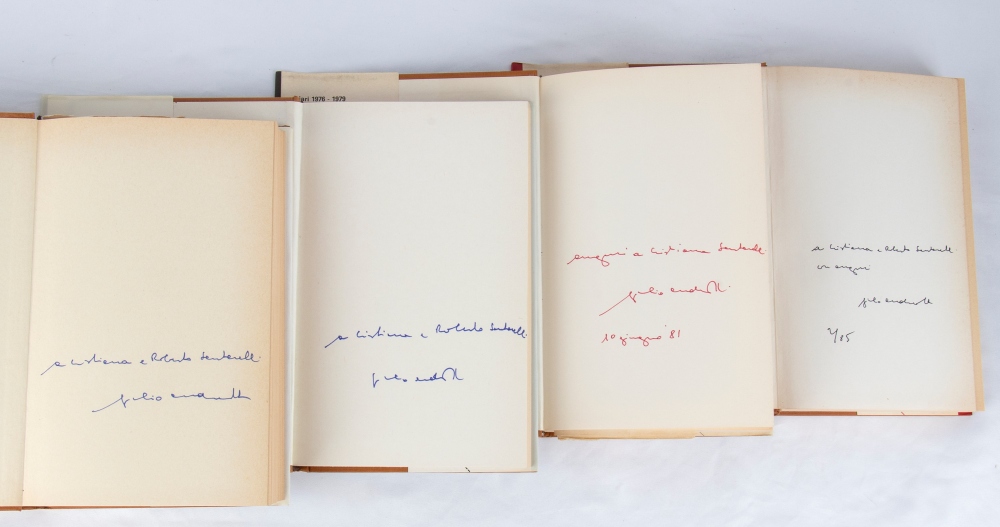 a Cristiana e Roberto Santarelli
Giulio Andreotti
ari 1976 - 1979
a Cristiana e Roberto Santarelli
Giulio Andreotti
auguri a Cristiana Santarelli
Giulio Andreotti
10 giugno '81
a Cristiana e Roberto Santarelli
con auguri
Giulio Andreotti